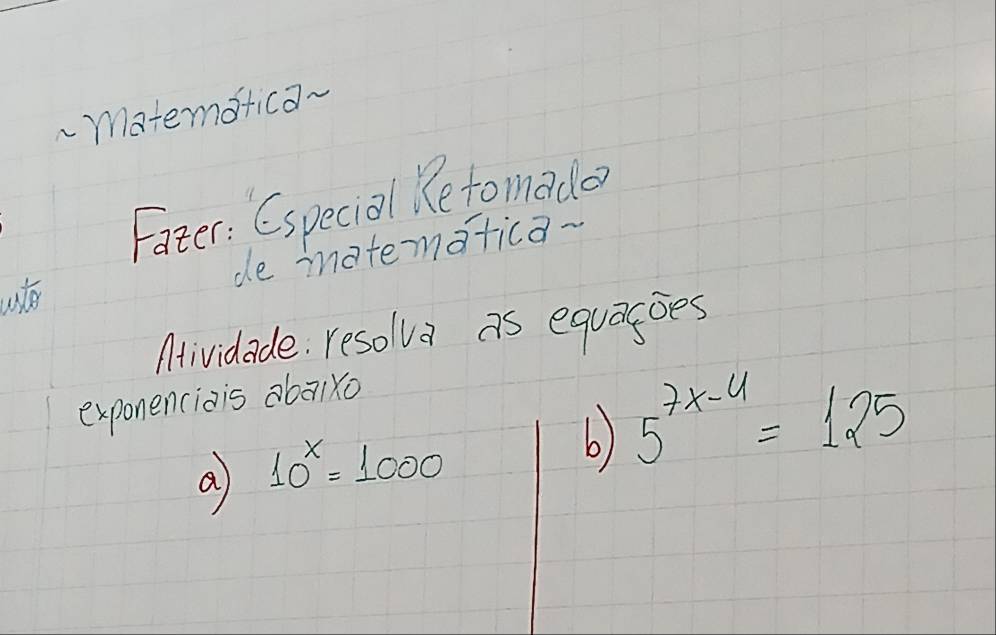 ~ Matemática ~
Fazer: "Especial Retomada
de matemática ~
Atividade: resolva as equações
exponenciais abaixo
a) 10^x = 1000
b) 5^7x-4 = 125